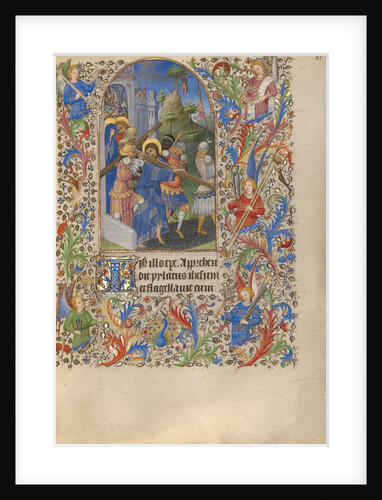 In illo tpr. Apprehen
dit pylatus ihesum
et flagellauit eum